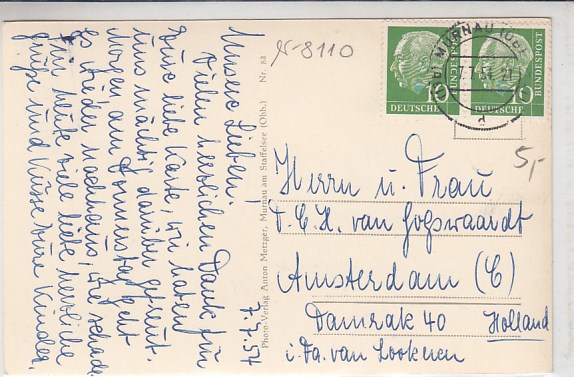 Unsere Lieben!
7.7.54
Vielen herzlichen Dank für
Eure liebe Karte, wir haben
uns mächtig darüber gefreut.
Morgen am Donnerstag geht
es wieder nach Haus, wie schade
Für heute viele liebe herzliche
Grüße und Küsse Eure Kinder.
Photo-Verlag Anton Metzger, Murnau am Staffelsee (Obb.) Nr. 88
N-8110
MURNAU (OBB)
7.7.54
d
10
DEUTSCHE
BUNDESPOST
10
DEUTSCHE
BUNDESPOST
5,-
Herrn u. Frau
van
Amsterdam (C)
Damrak 40 Holland
i. Fa. van